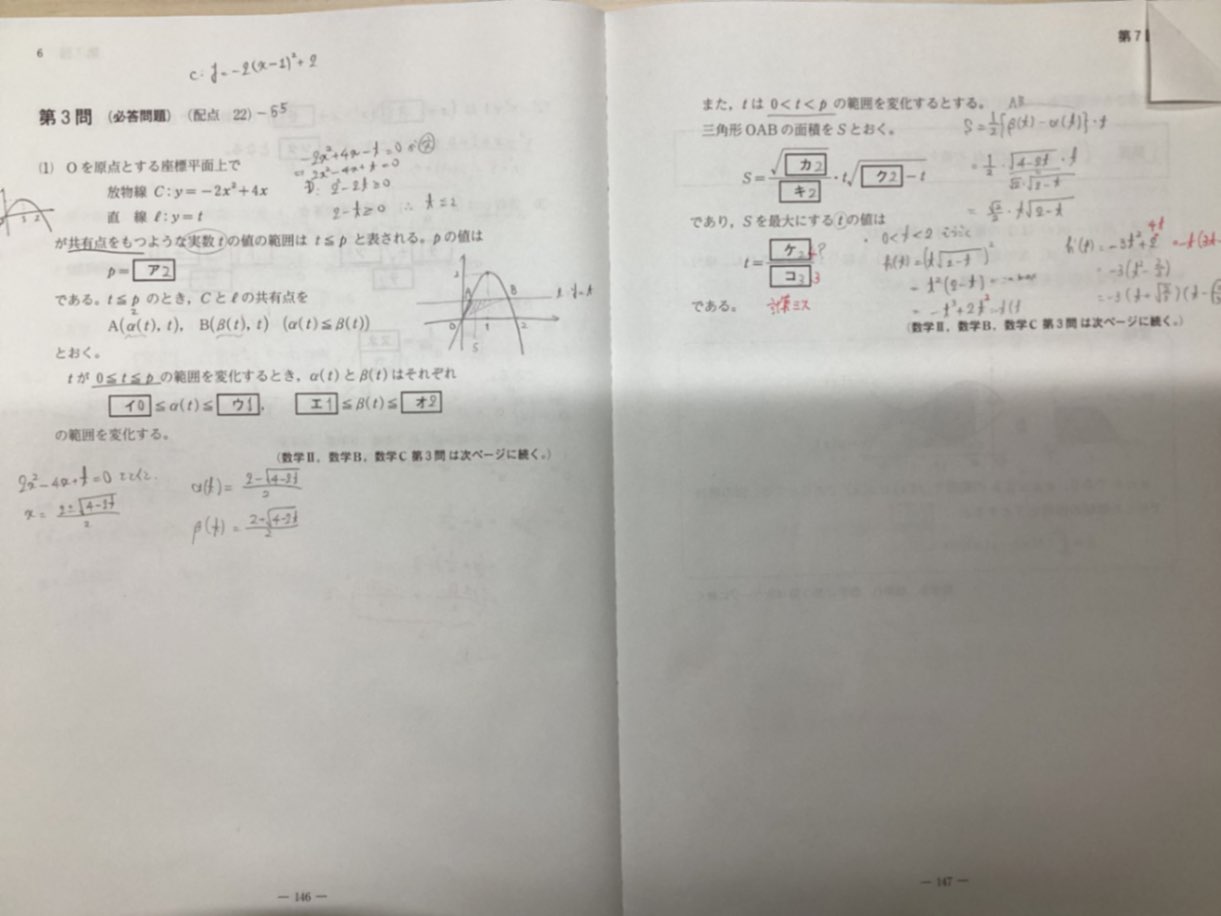 6
C: y=-2(x-1)²+2
第3問 (必答問題) (配点 22) -5⁵
(1) Oを原点とする座標平面上で
-2x²+4x-t=0
⇔ 2x²-4x+t=0
放物線 C:y=-2x²+4x
2-t≧0 ∴ t≦2
直線 ℓ:y=t
が共有点をもつような実数tの値の範囲は t≦p と表される。pの値は
p= ア2
である。t≦p のとき,Cとℓの共有点を
2
A(α(t), t), B(β(t), t) (α(t)≦β(t))
とおく。
A B ℓ: y=t
O 1 2
tが 0≦t≦p の範囲を変化するとき,α(t)とβ(t)はそれぞれ
イ0 ≦α(t)≦ ウ1, エ1 ≦β(t)≦ オ2
の範囲を変化する。
(数学Ⅱ,数学B,数学C 第3問は次ページに続く。)
2x²-4x+t=0
x=(2±√(4-2t))/2
α(t)=(2-√(4-2t))/2
β(t)=(2-√(4-2t))/2
― 146 ―
第7
また,tは 0<t<p の範囲を変化するとする。
AB
三角形OABの面積をSとおく。
S=1/2{β(t)-α(t)}・t
S=√カ2/キ2・t√(ク2-t)
=1/2・√(4-2t)・t
√2・√(2-t)
=√2/2・t√(2-t)
であり,Sを最大にするtの値は
0<t<2
t=ケ2/コ2
4?
3
h(t)=(t√(2-t))²
=t²(2-t)
=-t³+2t²
4t
=-3(t²-2/3)
である。
計算ミス
(数学Ⅱ,数学B,数学C 第3問は次ページに続く。)
― 147 ―